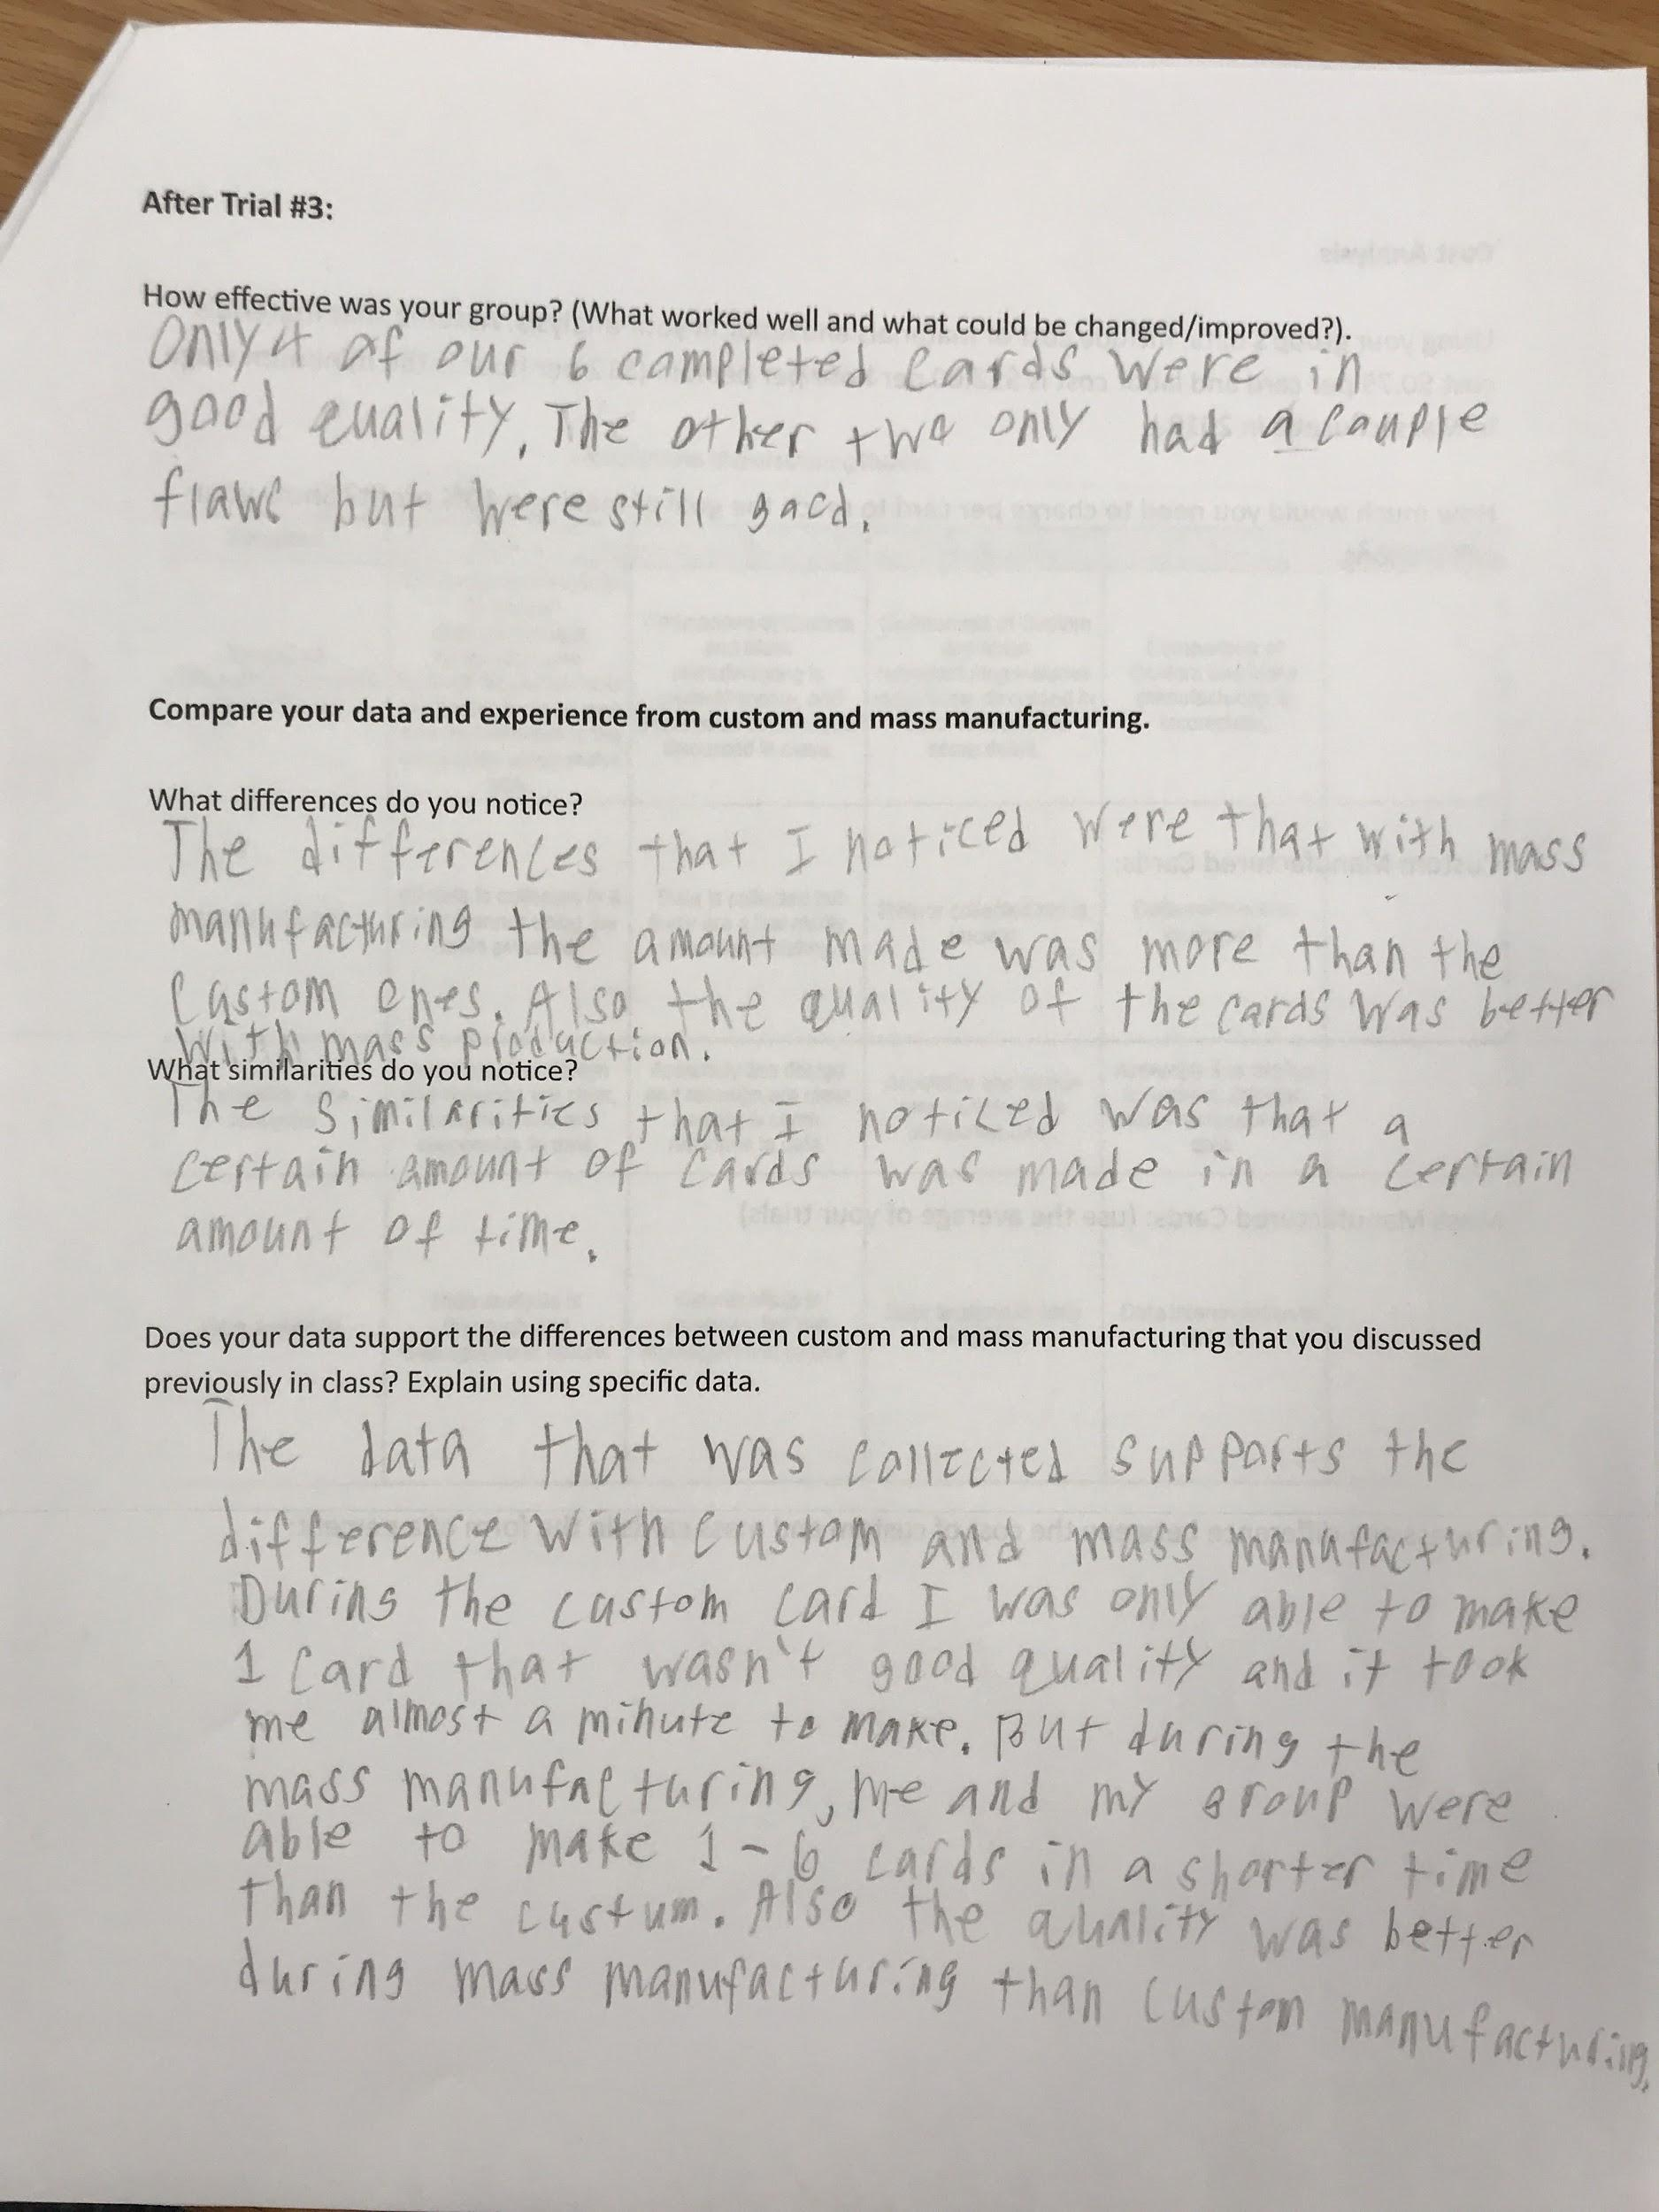 After Trial #3:
How effective was your group? (What worked well and what could be changed/improved?).
Only 4 of our 6 completed cards were in
good quality. The other two only had a couple
flaws but were still good.
Compare your data and experience from custom and mass manufacturing.
What differences do you notice?
The differences that I noticed were that with mass
manufacturing the amount made was more than the
custom ones. Also the quality of the cards was better
with mass production.
What similarities do you notice?
The similarities that I noticed was that a
certain amount of cards was made in a certain
amount of time.
Does your data support the differences between custom and mass manufacturing that you discussed
previously in class? Explain using specific data.
The data that was collected supports the
difference with custom and mass manufacturing.
During the custom card I was only able to make
1 card that wasn't good quality and it took
me almost a minute to make. But during the
mass manufacturing, me and my group were
able to make 1-6 cards in a shorter time
than the custum. Also the quality was better
during mass manufacturing than custom manufacturing.